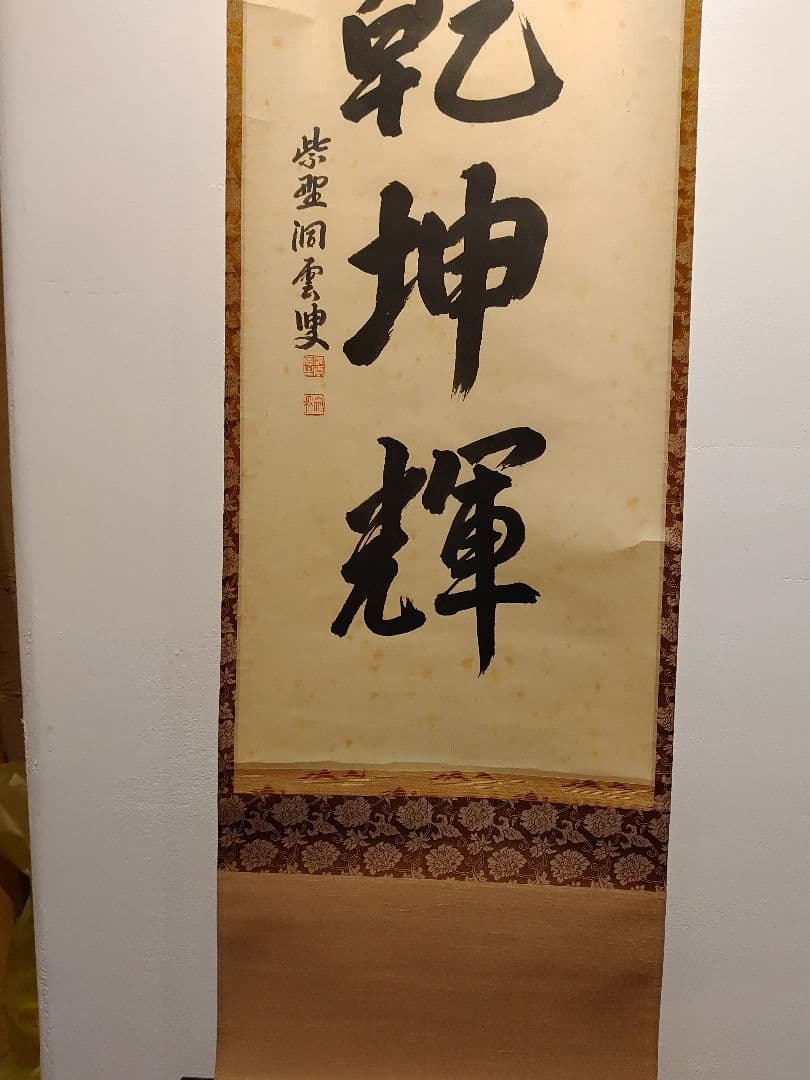 乾坤輝
紫野洞雲叟